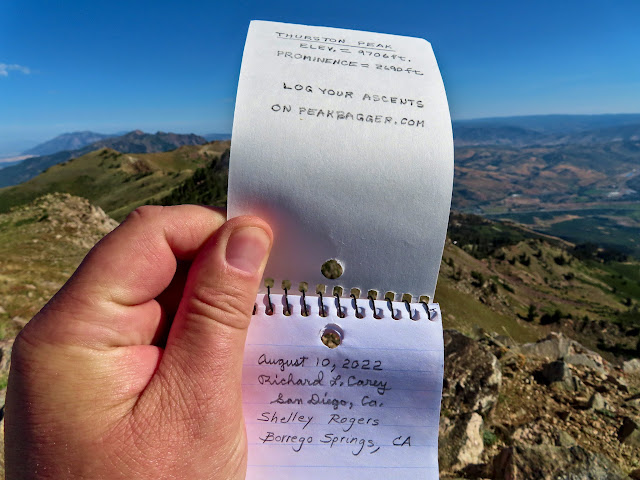 THURSTON PEAK
ELEV. = 9706 ft.
PROMINENCE = 2690 ft
LOG YOUR ASCENTS
ON PEAKBAGGER.COM
August 10, 2022
Richard L. Carey
San Diego, Ca.
Shelley Rogers
Borrego Springs, CA